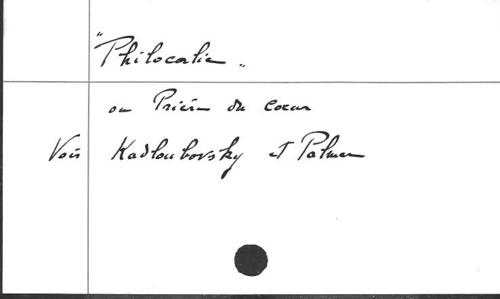 "Philocalie"
ou Prière du Coeur
Voir Kadloubovsky et Palmer